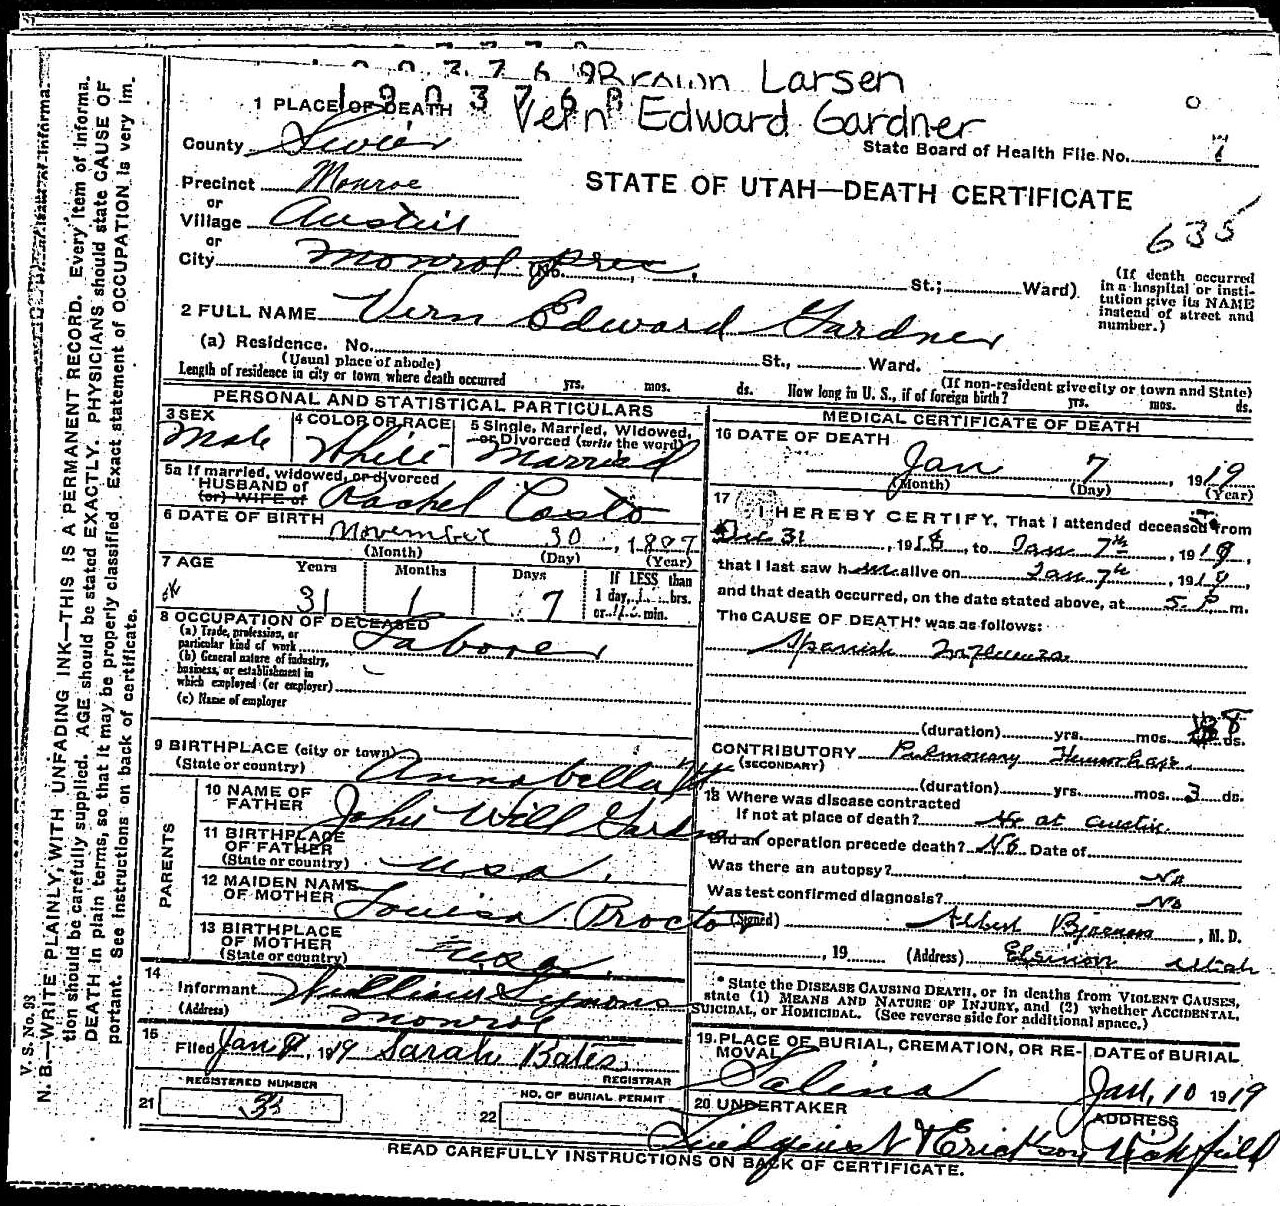 Brown Larsen
Vern Edward Gardner
1 PLACE OF DEATH
State Board of Health File No.
County Sevier
Precinct Monroe
or
Village Austin
or
City Monroe Prec. (No. St.; Ward)
STATE OF UTAH—DEATH CERTIFICATE
635
(If death occurred
in a hospital or insti-
tution give its NAME
instead of street and
number.)
2 FULL NAME Vern Edward Gardner
(a) Residence. No. St., Ward.
(Usual place of abode) (If non-resident give city or town and State)
Length of residence in city or town where death occurred yrs. mos. ds. How long in U. S., if of foreign birth? yrs. mos. ds.
PERSONAL AND STATISTICAL PARTICULARS
3 SEX Male
4 COLOR OR RACE White
5 Single, Married, Widowed,
or Divorced (write the word)
Married
5a If married, widowed, or divorced
HUSBAND of
(or) WIFE of Rachel Casto
6 DATE OF BIRTH
November 30, 1887
(Month) (Day) (Year)
7 AGE Years Months Days If LESS than
1 day, hrs.
31 1 7 or min.
8 OCCUPATION OF DECEASED
(a) Trade, profession, or
particular kind of work Laborer
(b) General nature of industry,
business, or establishment in
which employed (or employer)
(c) Name of employer
9 BIRTHPLACE (city or town)
(State or country) Annabella Ut
PARENTS
10 NAME OF
FATHER John Will Gardner
11 BIRTHPLACE
OF FATHER
(State or country) USA.
12 MAIDEN NAME
OF MOTHER Louisa Proctor
13 BIRTHPLACE
OF MOTHER
(State or country) USA.
14
Informant William Symons
(Address) Monroe
15
Filed Jan 1919 Sarah Bates.
REGISTRAR
21 REGISTERED NUMBER
22 NO. OF BURIAL PERMIT
MEDICAL CERTIFICATE OF DEATH
16 DATE OF DEATH
Jan 7, 1919
(Month) (Day) (Year)
17 I HEREBY CERTIFY, That I attended deceased from
Dec 31, 1918, to Jan 7th, 1919,
that I last saw him alive on Jan 7th, 1919,
and that death occurred, on the date stated above, at 5 P m.
The CAUSE OF DEATH* was as follows:
Spanish Influenza
(duration) yrs. mos. 8 ds.
CONTRIBUTORY Pulmonary Hemorhage.
(SECONDARY)
(duration) yrs. mos. 3 ds.
18 Where was disease contracted
If not at place of death? at Austin.
Did an operation precede death? No Date of
Was there an autopsy? No
Was test confirmed diagnosis? No
(Signed) Albert, M. D.
, 19 (Address) Elsinore Utah
* State the DISEASE CAUSING DEATH, or in deaths from VIOLENT CAUSES,
state (1) MEANS AND NATURE OF INJURY, and (2) whether ACCIDENTAL,
SUICIDAL, or HOMICIDAL. (See reverse side for additional space.)
19. PLACE OF BURIAL, CREMATION, OR RE-
MOVAL Salina
DATE of BURIAL
Jan, 10 1919
20 UNDERTAKER
ADDRESS
& Erickson, Richfield
READ CAREFULLY INSTRUCTIONS ON BACK OF CERTIFICATE.
V. S. No. 98
N. B.—WRITE PLAINLY, WITH UNFADING INK—THIS IS A PERMANENT RECORD. Every item of informa-
tion should be carefully supplied. AGE should be stated EXACTLY. PHYSICIANS should state CAUSE OF
DEATH in plain terms, so that it may be properly classified. Exact statement of OCCUPATION is very im-
portant. See instructions on back of certificate.